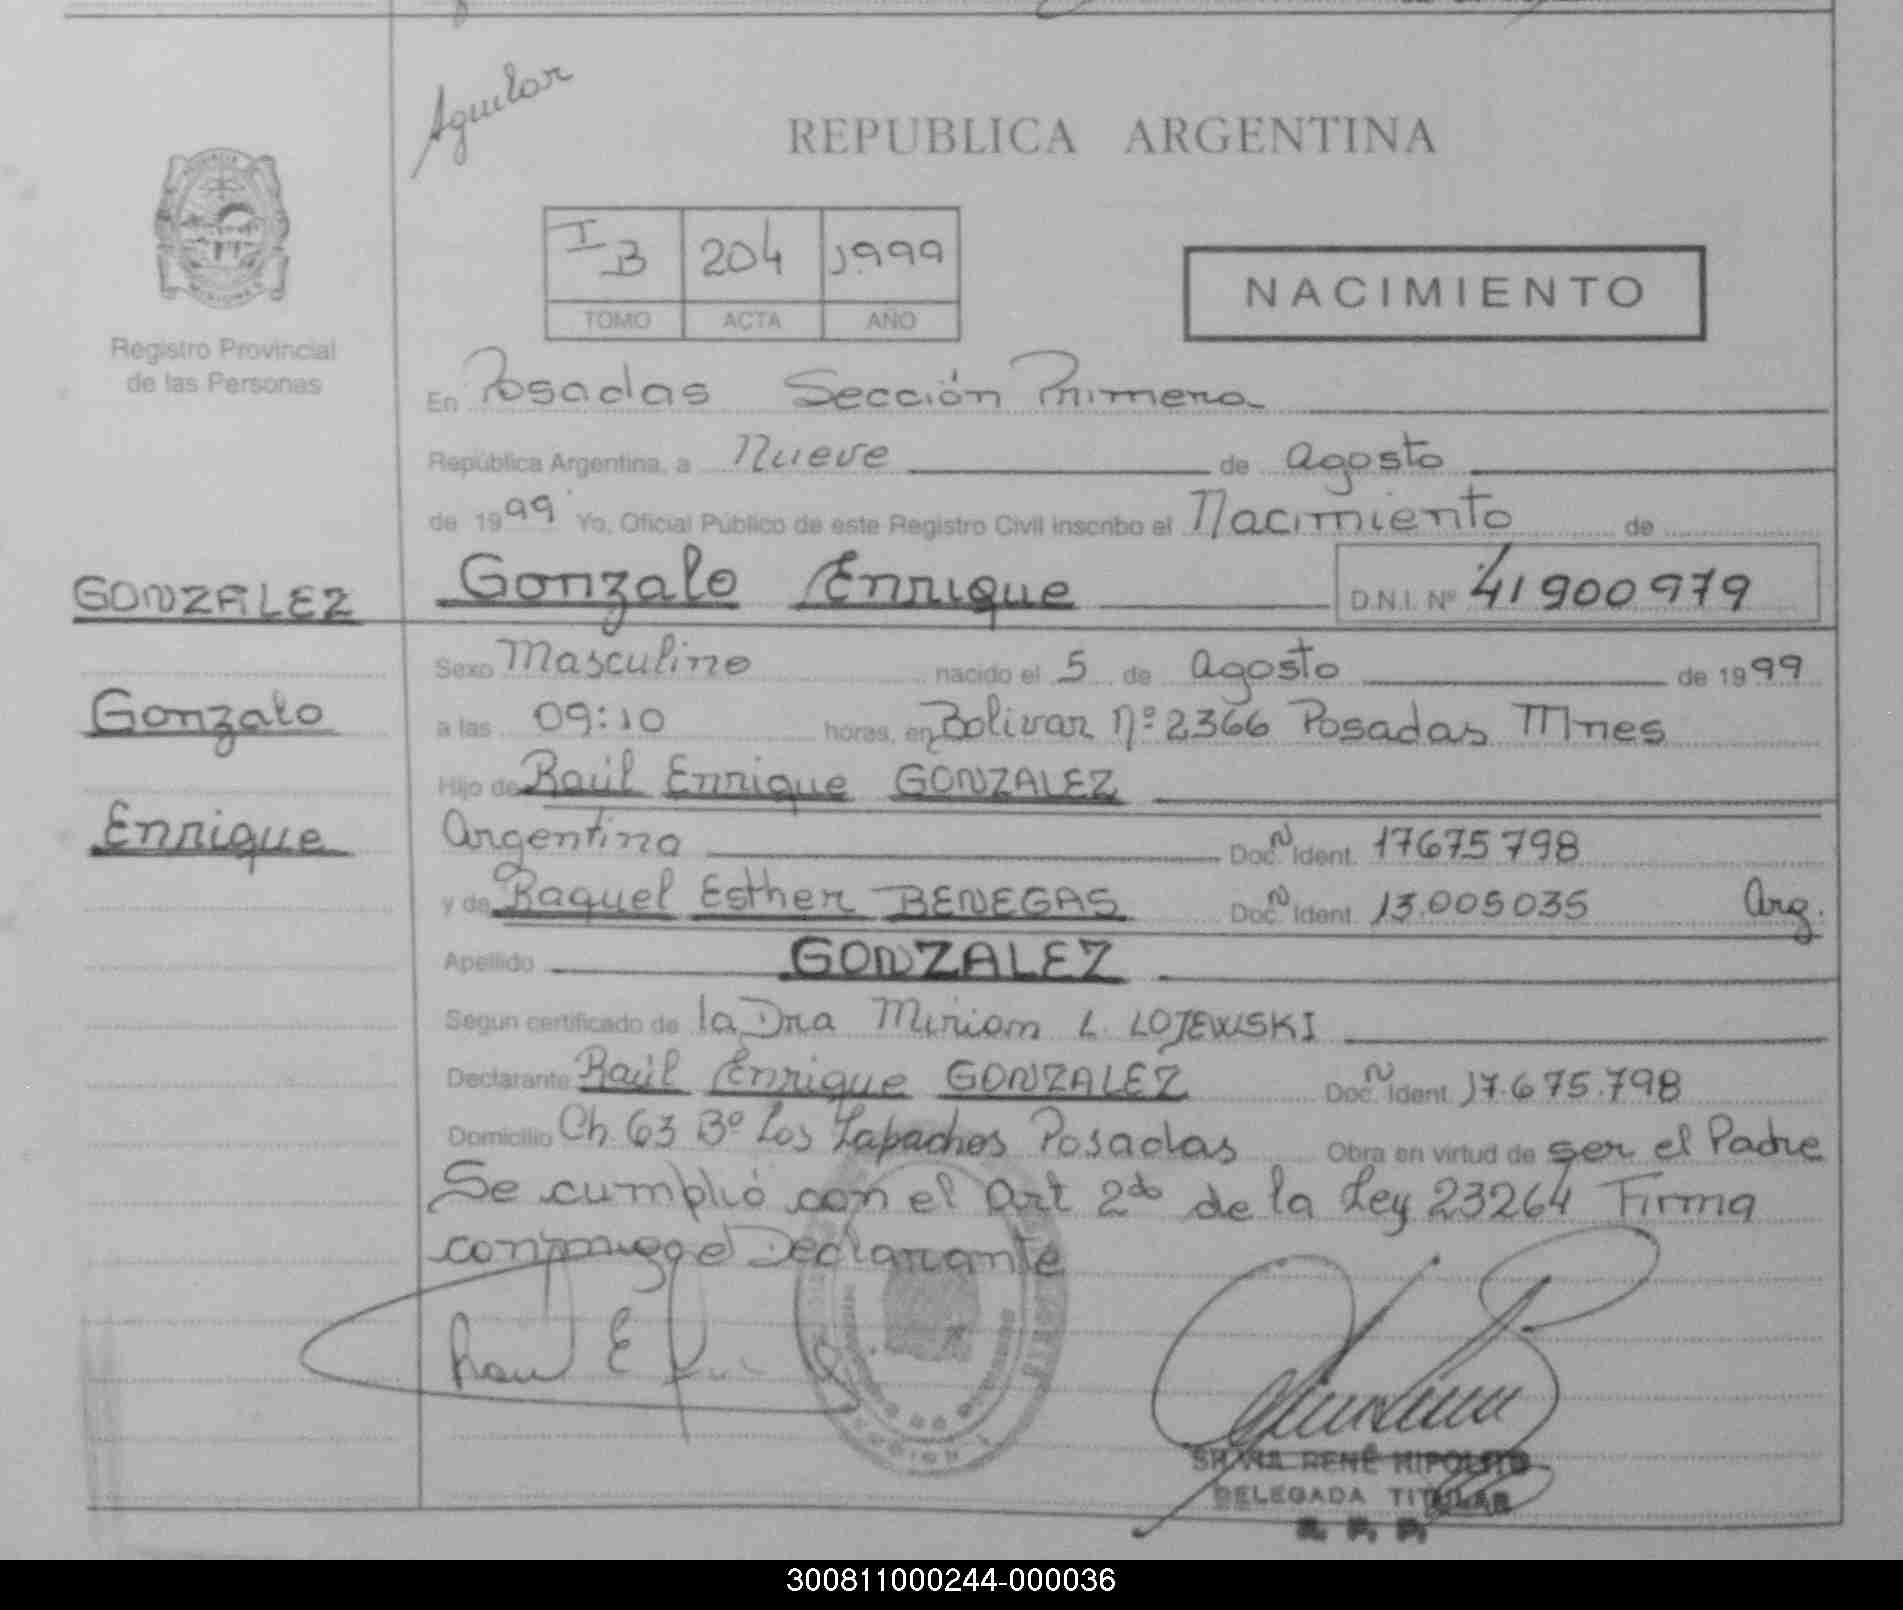 Aguilar
REPUBLICA ARGENTINA
MISIONES
Registro Provincial
de las Personas
I B 204 1999
TOMO ACTA AÑO
NACIMIENTO
En Posadas Sección Primera
República Argentina, a Nueve de agosto
de 1999 Yo, Oficial Público de este Registro Civil inscribo el Nacimiento de
GONZALEZ
Gonzalo
Enrique
Gonzalo Enrique D.N.I. Nº 41900979
Sexo Masculino nacido el 5 de agosto de 1999
a las 09:10 horas, en Bolivar Nº 2366 Posadas Mnes
Hijo de Raúl Enrique GONZALEZ
Argentina Doc. N Ident. 17675798
y de Raquel Esther BENEGAS Doc. N Ident. 13.005035 Arg.
Apellido GONZALEZ
Segun certificado de la Dra Miriam L. LOJEWSKI
Declarante Raúl Enrique GONZALEZ Doc. N Ident. 17.675.798
Domicilio Ch. 63 Bº Los Lapachos Posadas Obra en virtud de ser el Padre
Se cumplió con el art 2do de la Ley 23264 Firma
conmigo el Declarante
Raul E
SILVIA RENÉ HIPOLITO
DELEGADA TITULAR
R. P. P.
300811000244-000036